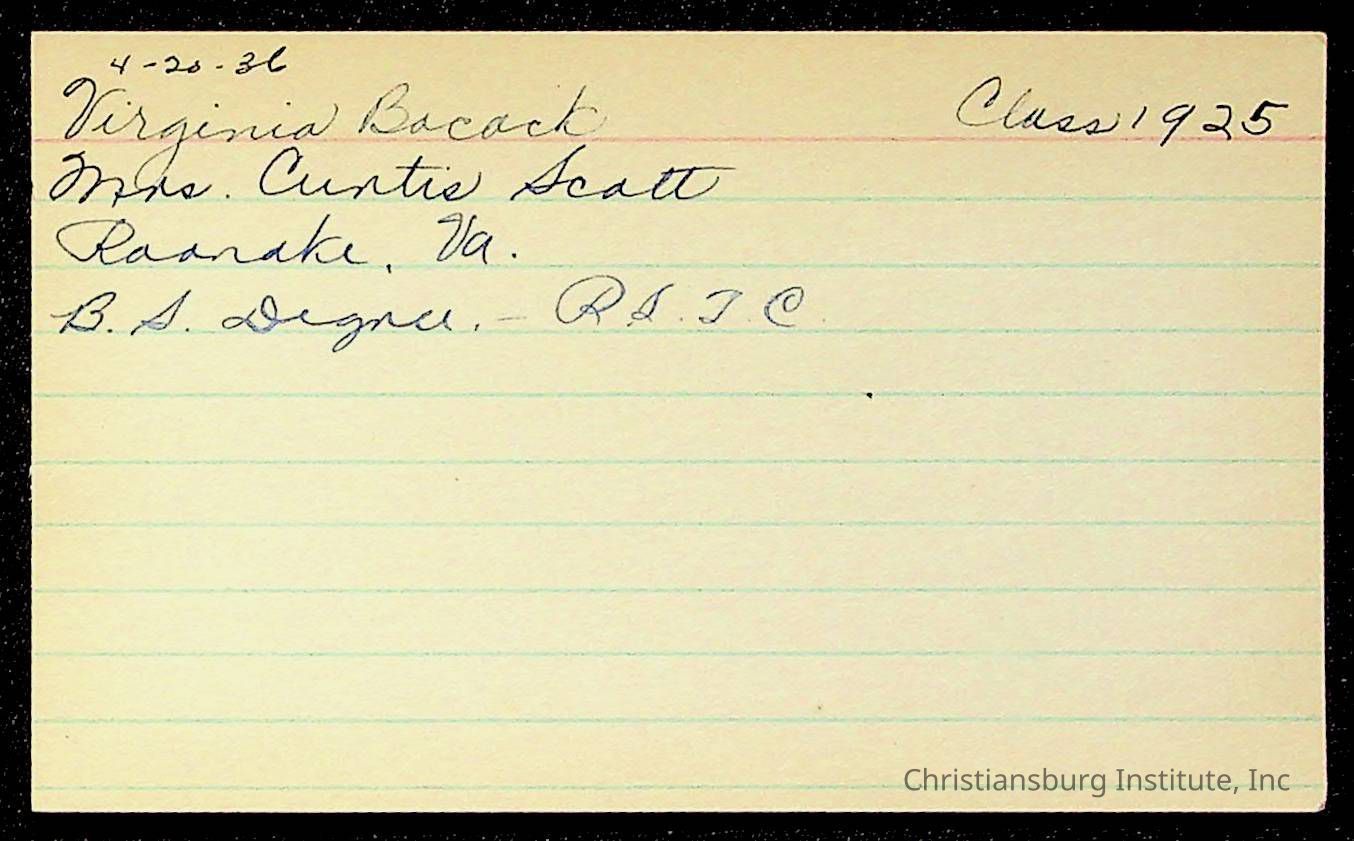 4-20-36
Virginia Bocock Class 1925
Mrs. Curtis Scott
Roanoke, Va.
B. S. Degree. - R S. T C.
Christiansburg Institute, Inc